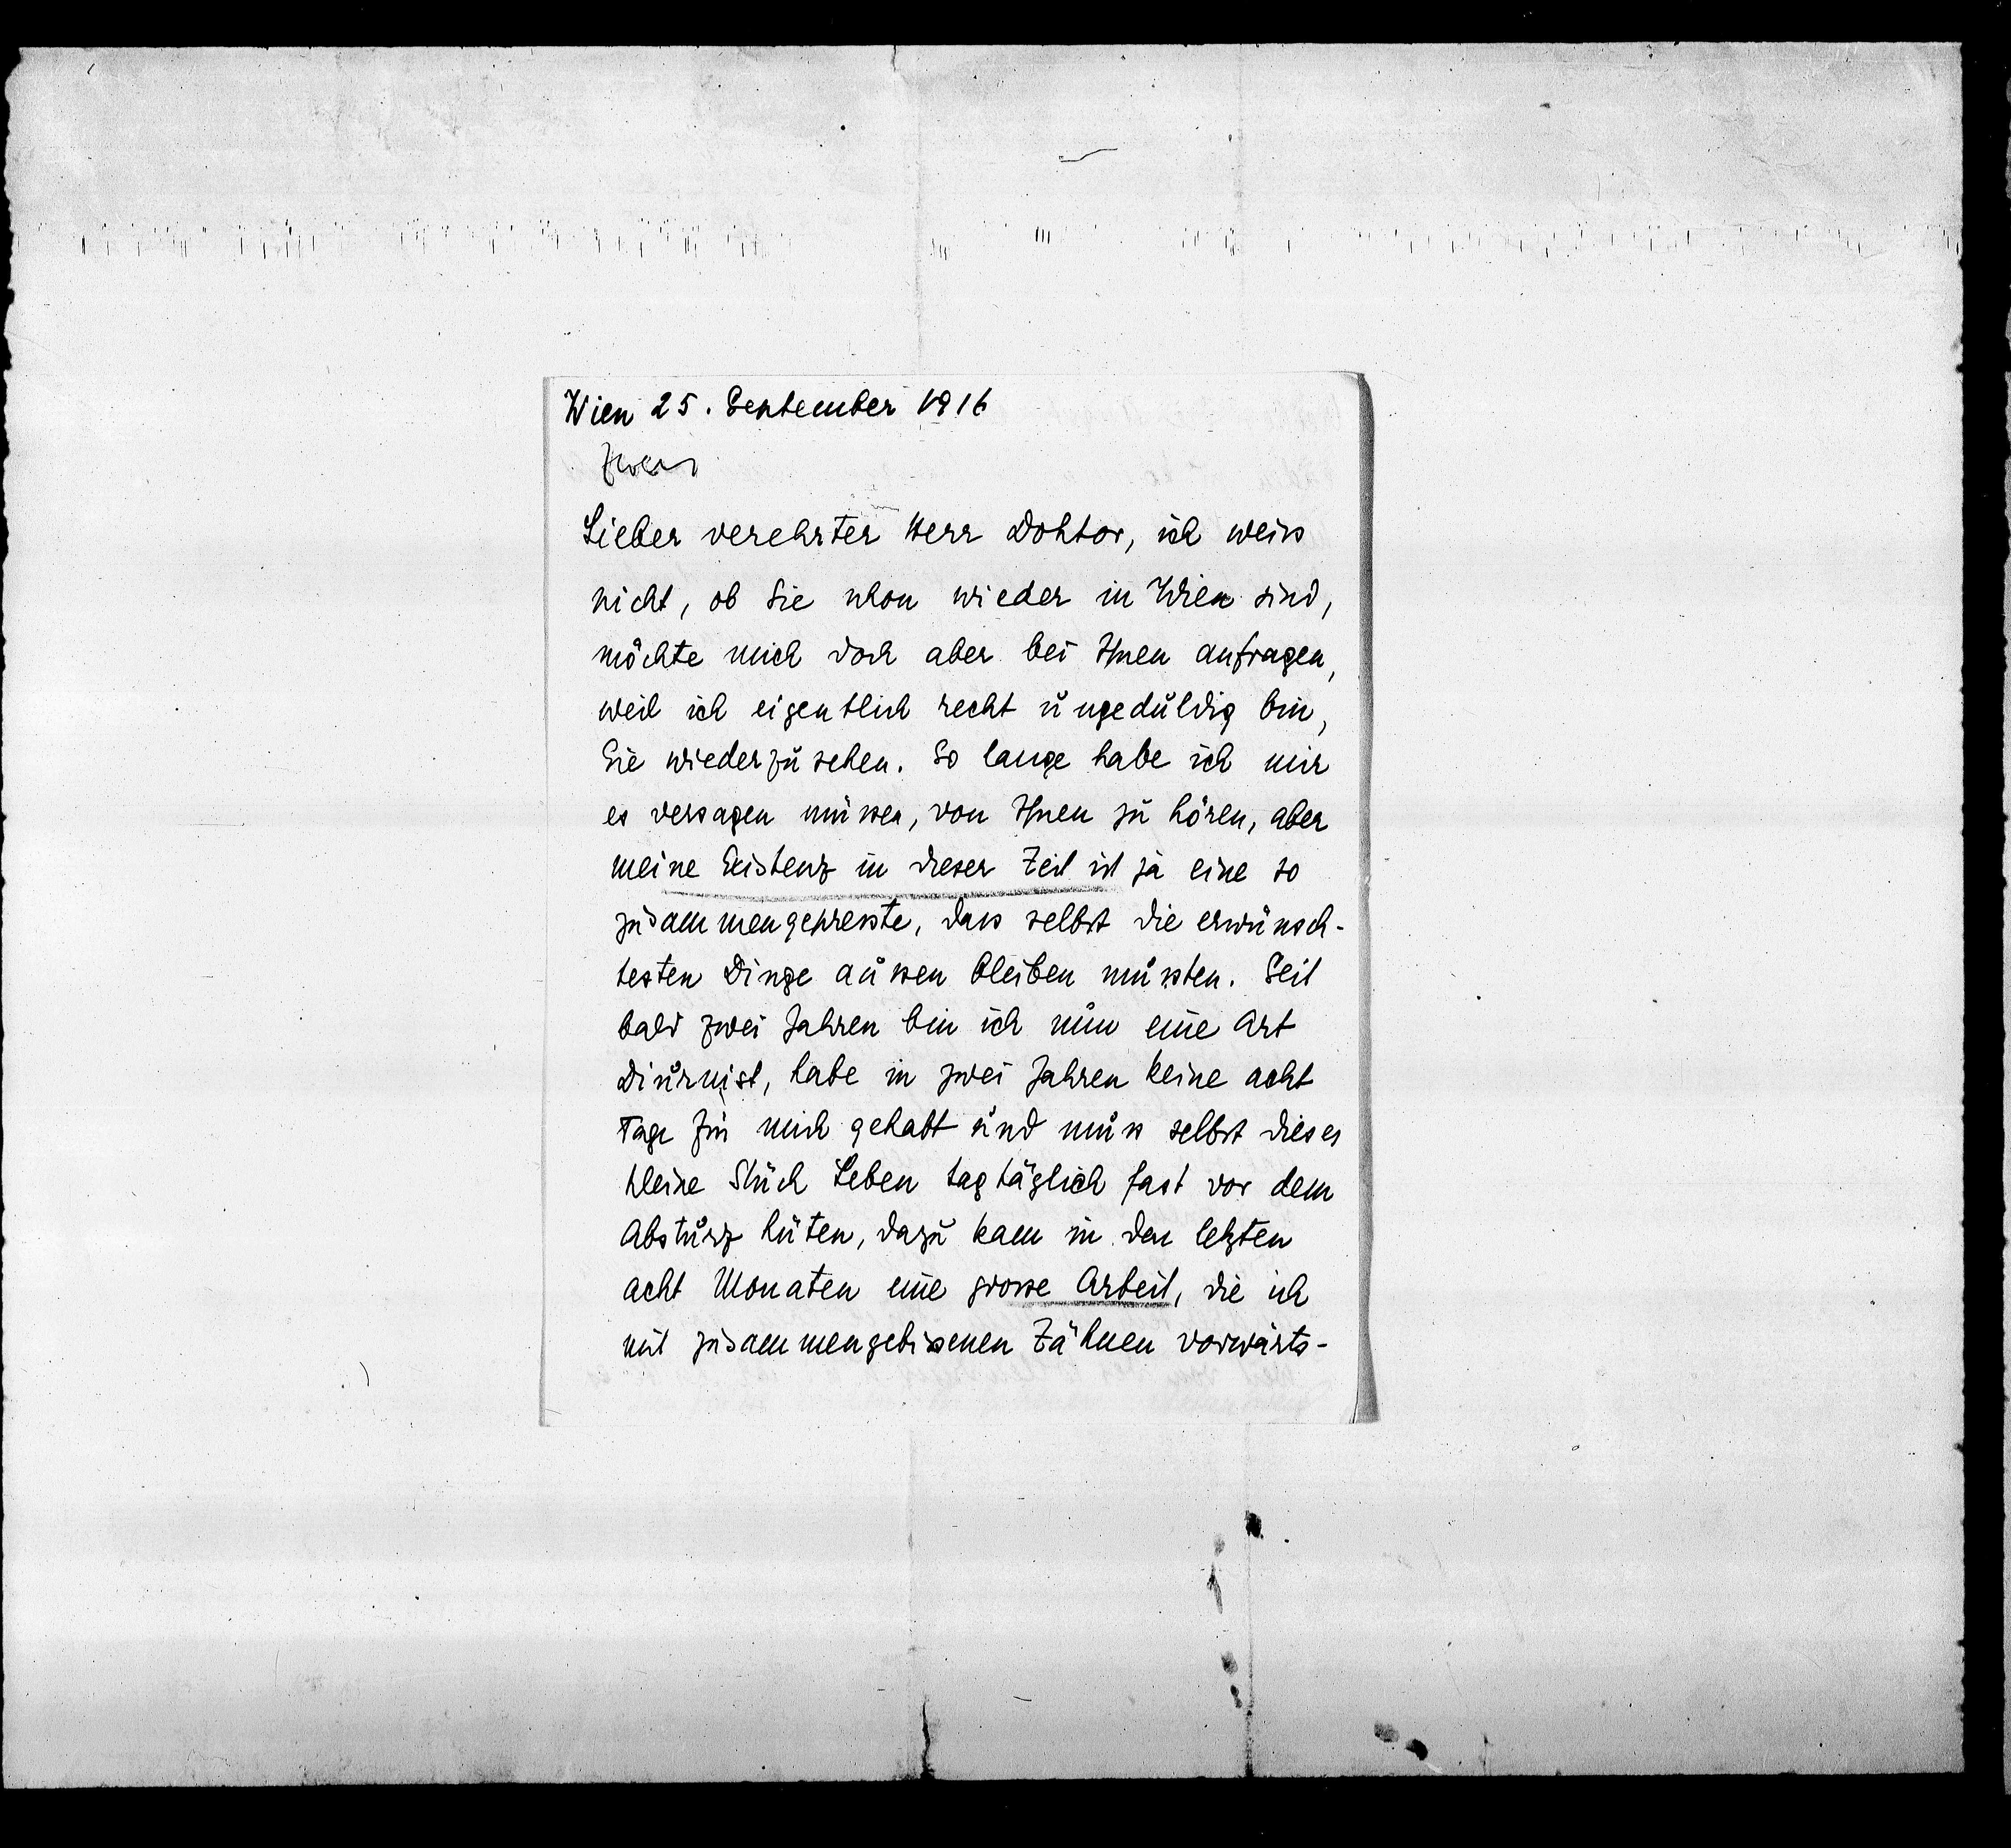 Wien 25. September 1916
Zweig
Lieber verehrter Herr Doktor, ich weiss
nicht, ob Sie schon wieder in Wien sind,
möchte mich doch aber bei Ihnen anfragen,
weil ich eigentlich recht ungeduldig bin,
Sie wiederzusehen. So lange habe ich mir
es versagen müssen, von Ihnen zu hören, aber
meine Existenz in dieser Zeit ist ja eine so
zusammengepresste, dass selbst die erwünsch-
testen Dinge aussen bleiben mussten. Seit
bald zwei Jahren bin ich nun eine Art
Diurnist, habe in zwei Jahren keine acht
Tage für mich gehabt und muss selbst dieses
kleine Stück Leben tagtäglich fast vor dem
Absturz hüten, dazu kam in den letzten
acht Monaten eine grosse Arbeit, die ich
mit zusammengebissenen Zähnen vorwärts-